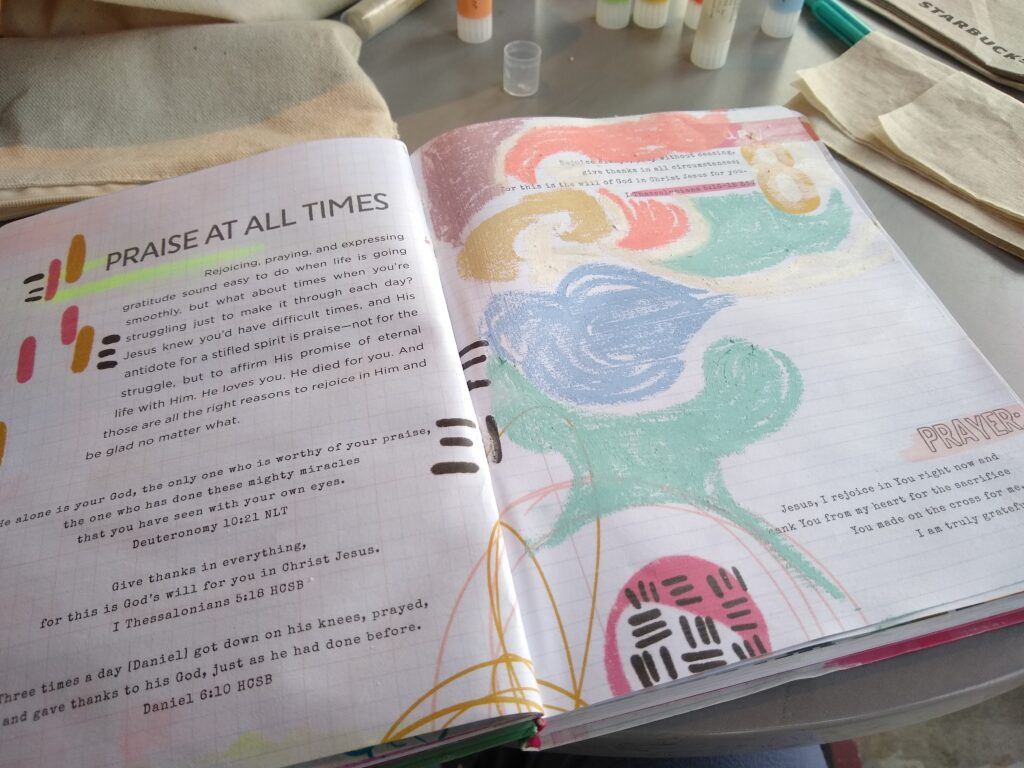 PRAISE AT ALL TIMES
Rejoicing, praying, and expressing
gratitude sound easy to do when life is going
smoothly, but what about times when you're
struggling just to make it through each day?
Jesus knew you'd have difficult times, and His
antidote for a stifled spirit is praise—not for the
struggle, but to affirm His promise of eternal
life with Him. He loves you. He died for you. And
those are all the right reasons to rejoice in Him and
be glad no matter what.
He alone is your God, the only one who is worthy of your praise,
the one who has done these mighty miracles
that you have seen with your own eyes.
Deuteronomy 10:21 NLT
Give thanks in everything,
for this is God's will for you in Christ Jesus.
I Thessalonians 5:18 HCSB
Three times a day [Daniel] got down on his knees, prayed,
and gave thanks to his God, just as he had done before.
Daniel 6:10 HCSB
8
Rejoice without ceasing,
give thanks in all circumstances;
for this is the will of God in Christ Jesus for you.
I Thessalonians
PRAYER:
Jesus, I rejoice in You right now and
You from my heart for the sacrifice
You made on the cross for me.
I am truly
STARBUCKS